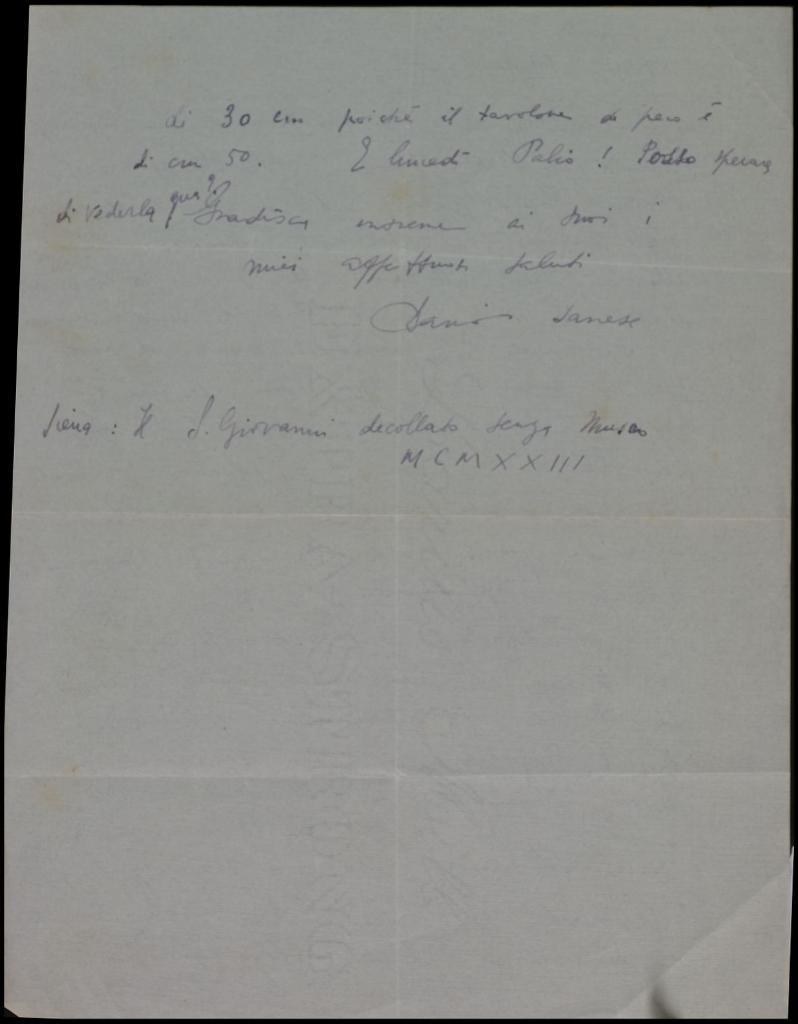 di 30 cm poichè il tavolone di pero è
di cm 50. E lunedì Palio! Posso sperare
di vederla qua?
Gradisca insieme ai Suoi i
miei affettuosi saluti
Dario
Siena: Il S. Giovanni decollato senza Museo
MCMXXIII